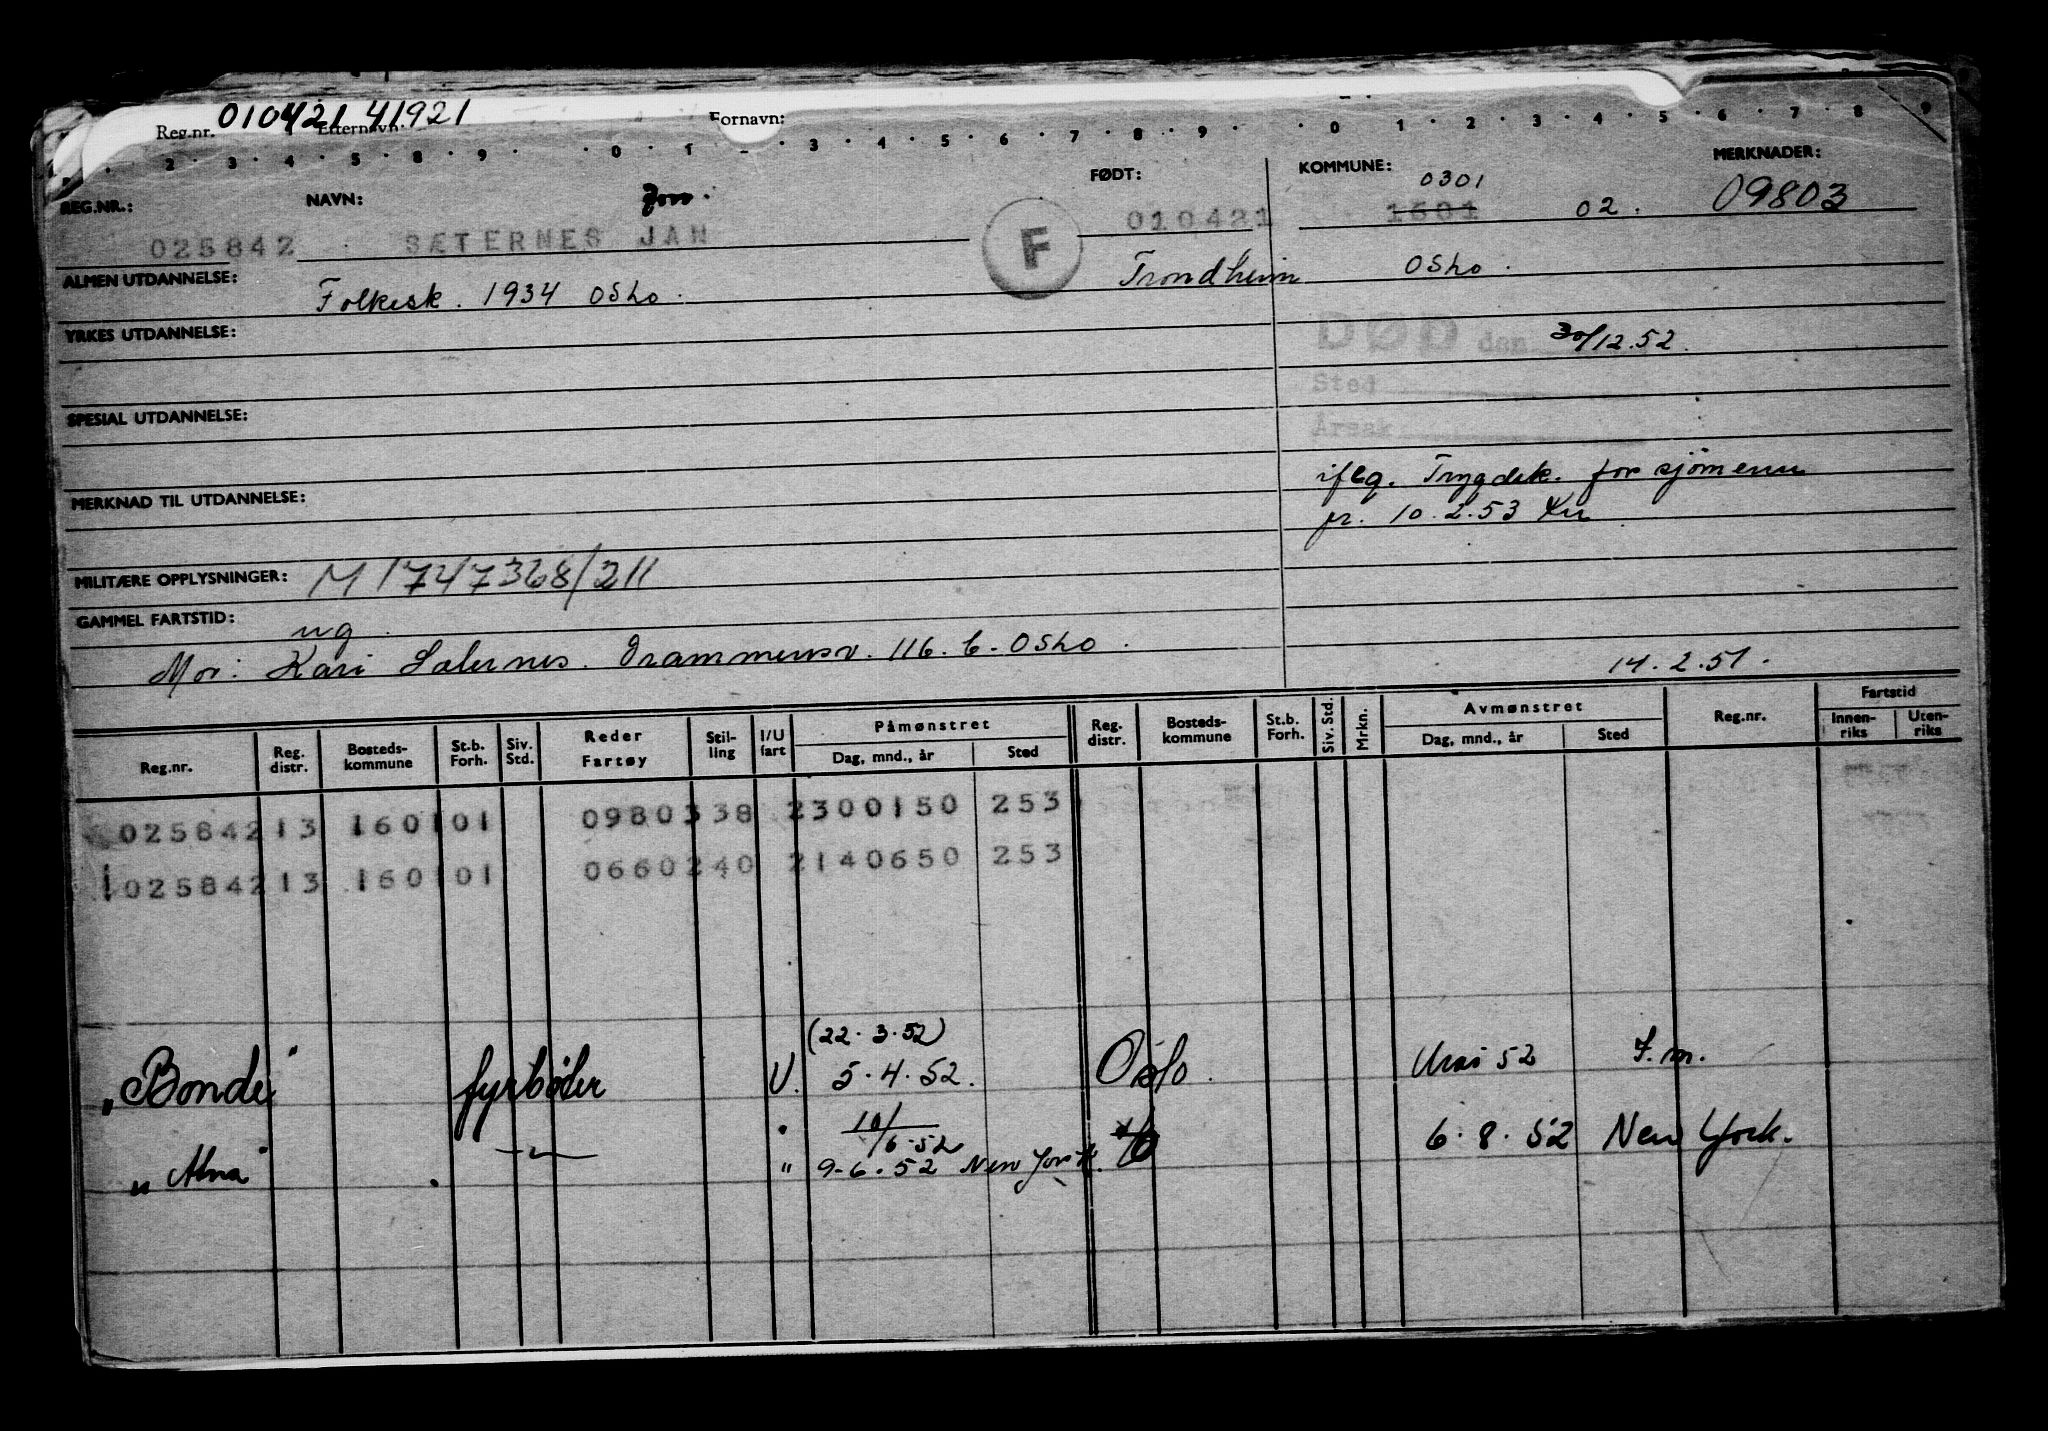 Reg.nr. 010421 41921 Etternavn: Fornavn:
2 · 3 · 4 · 5 · 8 · 9 · 0 · 1 · 3 · 4 · 5 · 6 · 7 · 8 · 9 · 0 · 1 · 2 · 3 · 4 · 5 · 6 · 7 · 8 9
REG.NR.: NAVN: FØDT: KOMMUNE: 0301 MERKNADER:
025842 SÆTERNES JAN F 010421 1601 02. 09803
ALMEN UTDANNELSE: Folkesk. 1934 Oslo. Trondheim Oslo.
YRKES UTDANNELSE: DØD den 30/12.52.
Sted
SPESIAL UTDANNELSE: Årsak
MERKNAD TIL UTDANNELSE: iflg. Trygdek. for sjømenn
pr. 10.2.53
MILITÆRE OPPLYSNINGER: M 1747368/211
GAMMEL FARTSTID: ug.
Mor: Kari Sæternes. Drammensv. 116.b. Oslo. 14.2.51.
Reg.nr. Reg. distr. Bosteds-kommune St.b. Forh. Siv. Std. Reder Fartøy Stil-ling I/U fart Påmønstret Dag, mnd., år Sted Reg. distr. Bosteds-kommune St.b. Forh. Siv. Std. Mrkn. Avmønstret Dag, mnd., år Sted Reg.nr. Fartstid Innen-riks Uten-riks
025842 13 160101 0980338 2300150 253
025842 13 160101 0660240 2140650 253
(22.3.52)
"Bonde" fyrbøter U. 5.4.52. Oslo. Mai 52 F.m.
10/6.52
"Alna" " 9-6.52 New York. 6.8.52 New York.